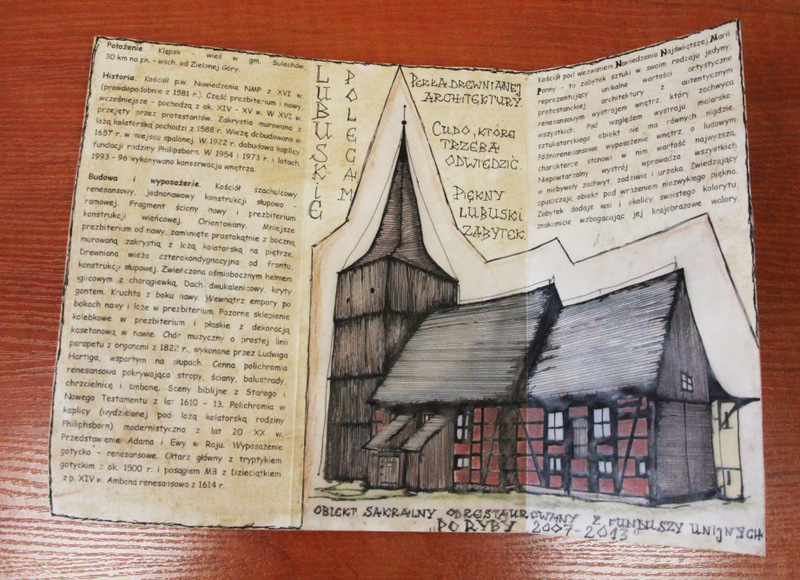 Położenie. Klępsk - wieś w gm. Sulechów,
30 km na pn. - wsch. od Zielonej Góry.
Historia. Kościół p.w. Nawiedzenia NMP z XVI w.
(prawdopodobnie z 1581 r.). Część prezbiterium i nawy,
wcześniejsze - pochodzą z ok. XIV - XV w. W XVI w.
przejęty przez protestantów. Zakrystia murowana z
lożą kolatorską pochodzi z 1588 r. Wieżę dobudowano w
1657 r. w miejscu spalonej. W 1922 r. dobudowa kaplicy
fundacji rodziny Philipsborn. W 1954 i 1973 r. i latach
1993 - 96 wykonywano konserwację wnętrza.
Budowa i wyposażenie. Kościół szachulcowy
renesansowy, jednonawowy konstrukcji słupowo -
ramowej. Fragment ściany nawy i prezbiterium
konstrukcji wieńcowej. Orientowany. Mniejsze
prezbiterium od nawy, zamknięte prostokątnie z boczną
murowaną zakrystią z lożą kolatorską na piętrze.
Drewniana wieża czterokondygnacyjna od frontu,
konstrukcji słupowej. Zwieńczona ośmiobocznym hełmem
iglicowym z chorągiewką. Dach dwukalenicowy kryty
gontem. Kruchta z boku nawy. Wewnątrz empory po
bokach nawy i loże w prezbiterium. Pozorne sklepienie
kolebkowe w prezbiterium i płaskie z dekoracją
kasetonową w nawie. Chór muzyczny o prostej linii
parapetu z organami z 1822 r., wykonane przez Ludwiga
Hartiga, wspartym na słupach. Cenna polichromia
renesansowa pokrywająca stropy, ściany, balustrady,
chrzcielnicę i ambonę. Sceny biblijne z Starego i
Nowego Testamentu z lat 1610 - 13. Polichromia w
kaplicy (wydzielonej pod lożą kolatorską rodziny
Philiphsborn) modernistyczna z lat 20 XX w.
Przedstawienie Adama i Ewy w Raju. Wyposażenie
gotycko - renesansowe. Ołtarz główny z tryptykiem
gotyckim z ok. 1500 r. i posągiem MB z Dzieciątkiem
z p. XIV w. Ambona renesansowa z 1614 r.
LUBUSKIE
POLECAM
PERŁA DREWNIANEJ
ARCHITEKTURY.
CUDO, KTÓRE
TRZEBA
ODWIEDZIĆ.
PIĘKNY
LUBUSKI
ZABYTEK.
Kościół pod wezwaniem Nawiedzenia Najświętszej Marii
Panny - to zabytek sztuki w swoim rodzaju jedyny,
reprezentujący unikalne wartości artystyczne
protestanckiej architektury z autentycznym
renesansowym wystrojem wnętrz, który zachwyca
wszystkich. Pod względem wystroju malarsko-
sztukatorskiego obiekt nie ma równych nigdzie.
Późnorenesansowe wyposażenie wnętrz o ludowym
charakterze stanowi w nim wartość najwyższą.
Niepowtarzalny wystrój wprowadza wszystkich
w niebywały zachwyt, zadziwia i urzeka. Zwiedzający
opuszczają obiekt pod wrażeniem niezwykłego piękna.
Zabytek dodaje wsi i okolicy swoistego kolorytu,
znakomicie wzbogacając jej krajobrazowe walory.
OBIEKT SAKRALNY ODRESTAUROWANY Z FUNDUSZY UNIJNYCH
„PO RYBY 2007-2013"